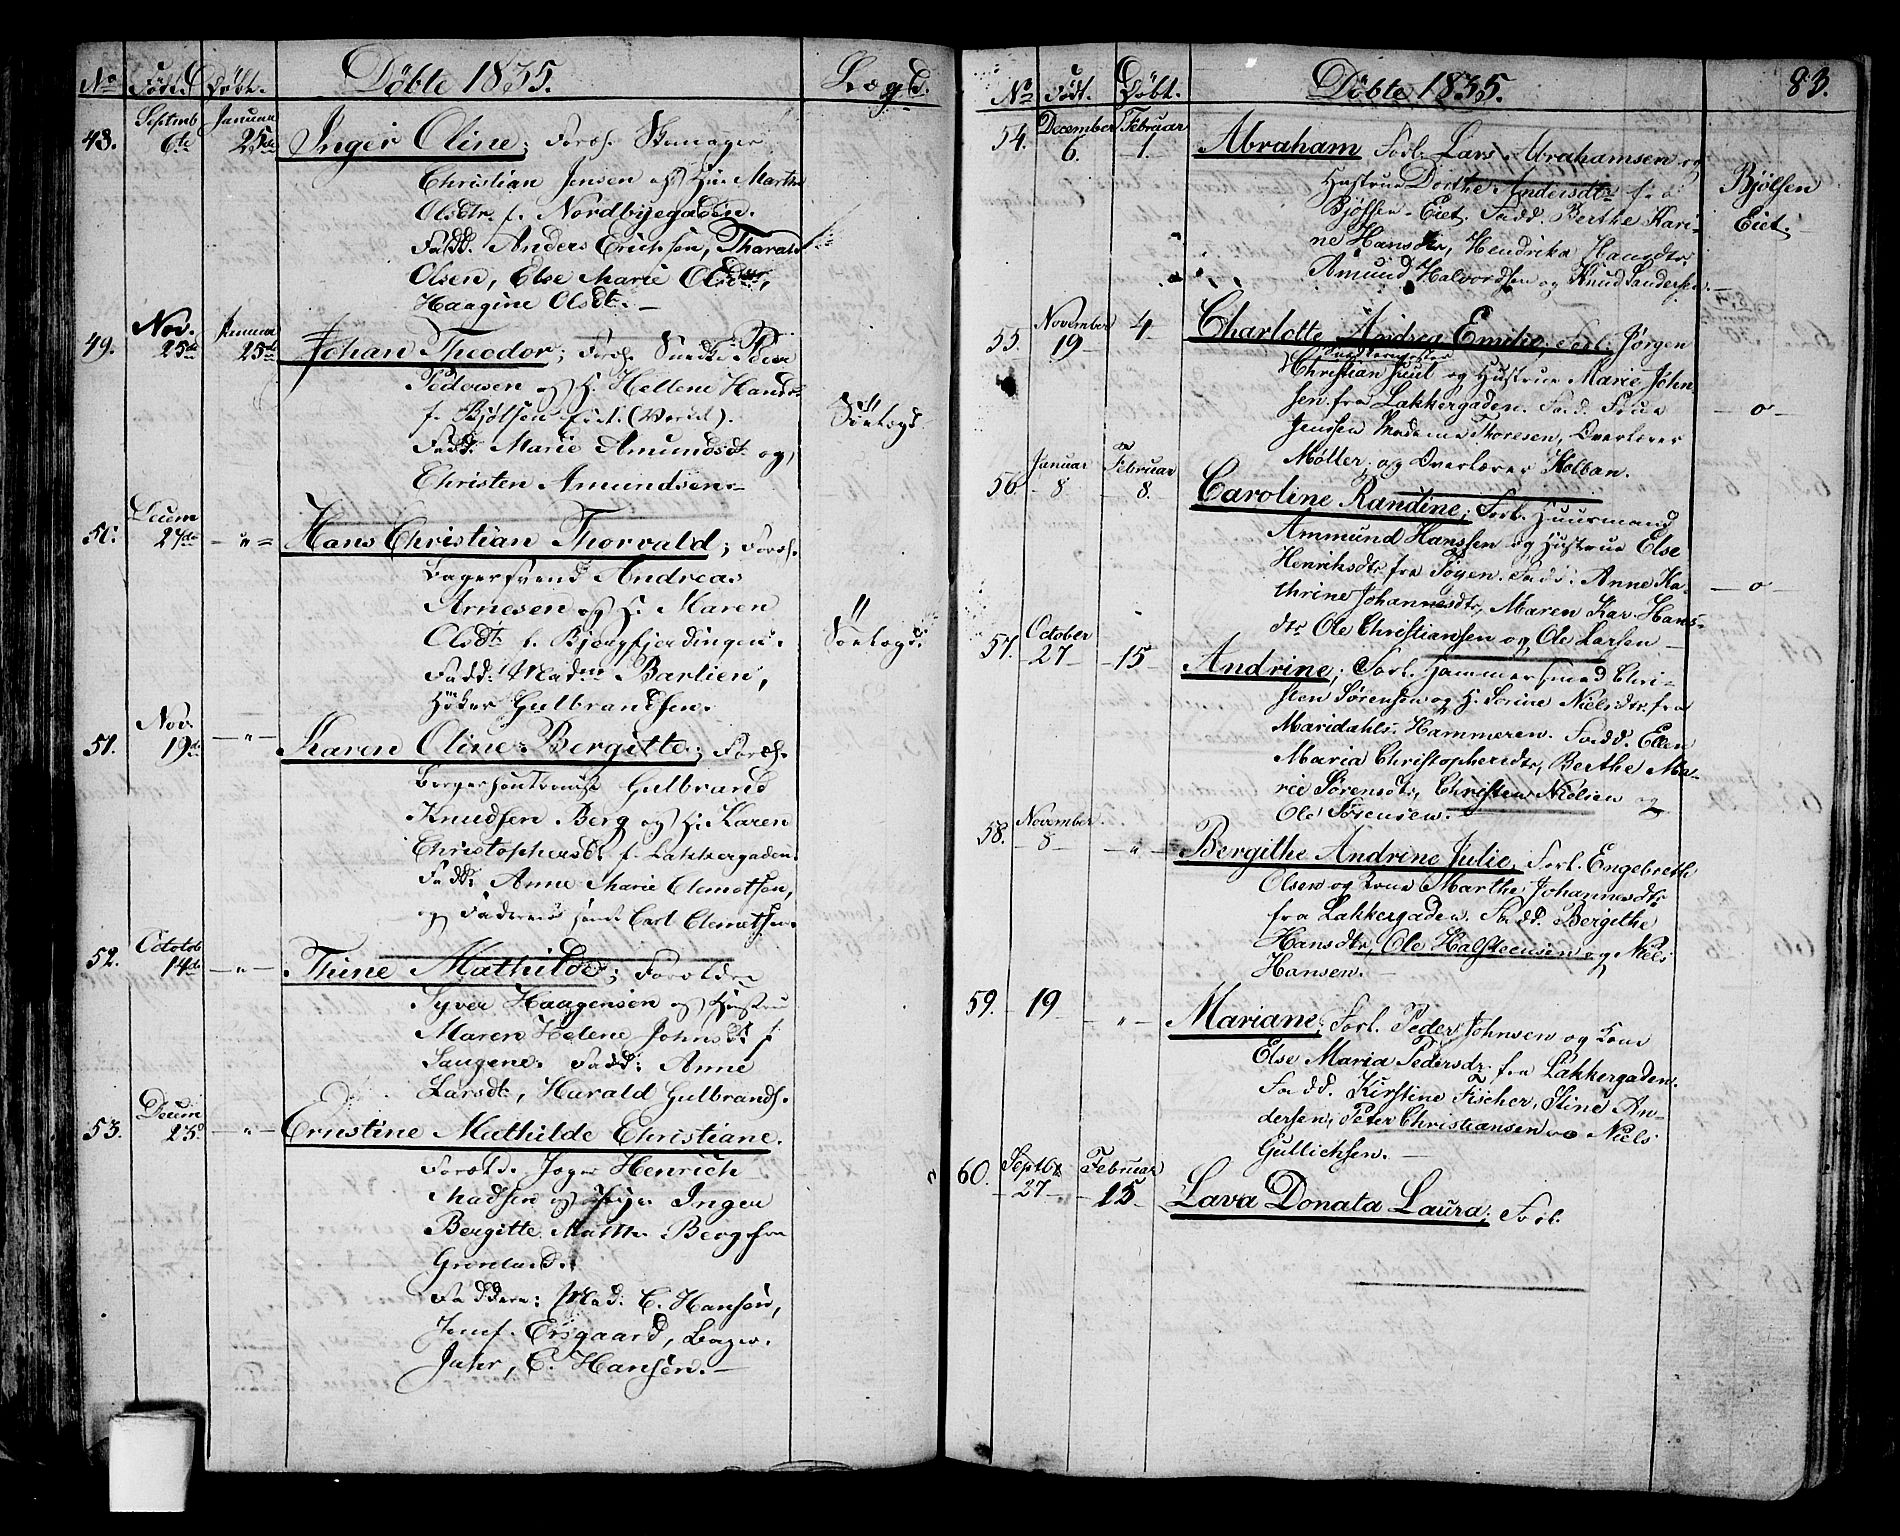 No Født Døbt. Døbte 1835. Lægd.
48. Septmb 6te Januar 25de Inger Oline; Foræl.
Christian Jensen og Hu Marthe
Olsdtr f. Nordbyegaden.
Fadd. Anders Erichsen, Tharald
Olsen, Else Marie Olsdtr,
Haagine Olsdt. —
49. Nov. 25de Januar 25de Johan Theodor; Foræl.
Pedersen og H. Hellene Hansd
f. Bjølsen Eiet.
Fadd. Marie Amundsdt og
Christen Amundsen —
Søelægd
Decem 27de — " — Hans Christian Thorvald; Foræl.
Bagersvend Andreas
Arnesen og H. Maren
Olsdt. f. Bjergfjerdingen.
Fadd: Madm Barlien,
Høker Gulbrandsen.
Søelægd.
51. Nov. 19de — " — Karen Oline Bergitte; Foræl.
Gulbrand
Knudsen Berg og H. Karen
Christophersdt. f. Lakkergaden.
Fadd: Anne Marie Clemetsen,
og Carl Clemetsen.
52. Octob 14de — " — Trine Mathilde; Forældre
Syver Haagensen og Hustru
Maren Helene Johnsdt f
Saugene. Fadd: Anne
Larsdt, Harald Gulbrands.
53. Decem 25de — " — Ernstine Mathilde Christiane.
Foræld. Henrich
Madsen og Pige Inger
Bergitte Mathea Berg fra
Grønland.
Faddere: Mad. C. Hansen,
Jomf. Ersgaard, Bager
Jahr, C. Hansen. —
No Født. Døbt. Døbte 1835. 83.
54. December 6. Februar 1. Abraham Forl. Lars Abrahamsen og
Hustrue Dorthe Andersdtr fra
Bjølsen Eiet. Fadd. Berthe Kari-
ne Hansdtr, Hendrika Hansdtr.
Amund Halvordsen og Knud Sanderse
Bjølsen
Eiet.
55. November 19 4 Charlotte Andrea Emilie; Forl. Jørgen
Christian Juul og Hustrue Marie John-
sen fra Lakkergaden. Fadd. Frue
Jenssen Madame Thoresen, Overlærer
Møller, og Overlærer Kolban.
— o —
56. Januar 8 Februar 8. Caroline Randine; Forl. Huusmand
Ammund Hanssen og Hustrue Else
Henriksdtr fra Tøyen. Fadd. Anne Ka-
thrine Johannesdtr, Maren Kar. Hans-
dtr Ole Christiansen og Ole Larsen —
— o —
57. October 27 15 Andrine; Forl. Hammersmed Chri-
sten Sørensen og H. Sorine Nielsdtr. fra
Maridahls. Hammeren. Fadd. Ellen
Maria Christophersdtr, Berthe Ma-
rie Sørensdtr, Christen Nielsen og
Ole Sørensen.
58. November 8 — " — Bergithe Andrine Julie, Forl. Engebreth
Olsen og Kone Marthe Johannesdtr
fra Lakkergaden. Fadd. Bergithe
Hansdtr, Ole Halsteensen og Niels
Hansen. —
59. 19 — " — Mariane; Forl. Peder Johnsen og Kone
Else Maria Pedersdr fra Lakkergaden.
Fadd. Kirstine Fischer, Stine An-
dersen, Peter Christiansen og Niels
Gullichsen. —
60. Septbr 27 Februar 15 Lava Donata Laura. Forl.